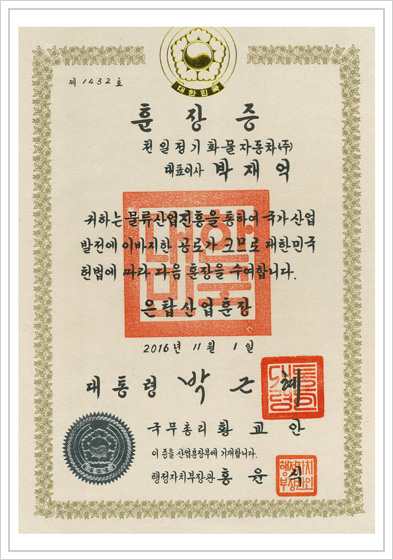 대한민국
제 1432 호
훈장증
천일정기화물자동차(주)
대표이사 박재억
귀하는 물류산업진흥을 통하여 국가산업
발전에 이바지한 공로가 크므로 대한민국
헌법에 따라 다음 훈장을 수여합니다.
은탑산업훈장
2016년 11월 1일
대통령 박근혜
국무총리 황교안
이 증을 산업훈장부에 기재합니다.
행정자치부장관 홍윤식